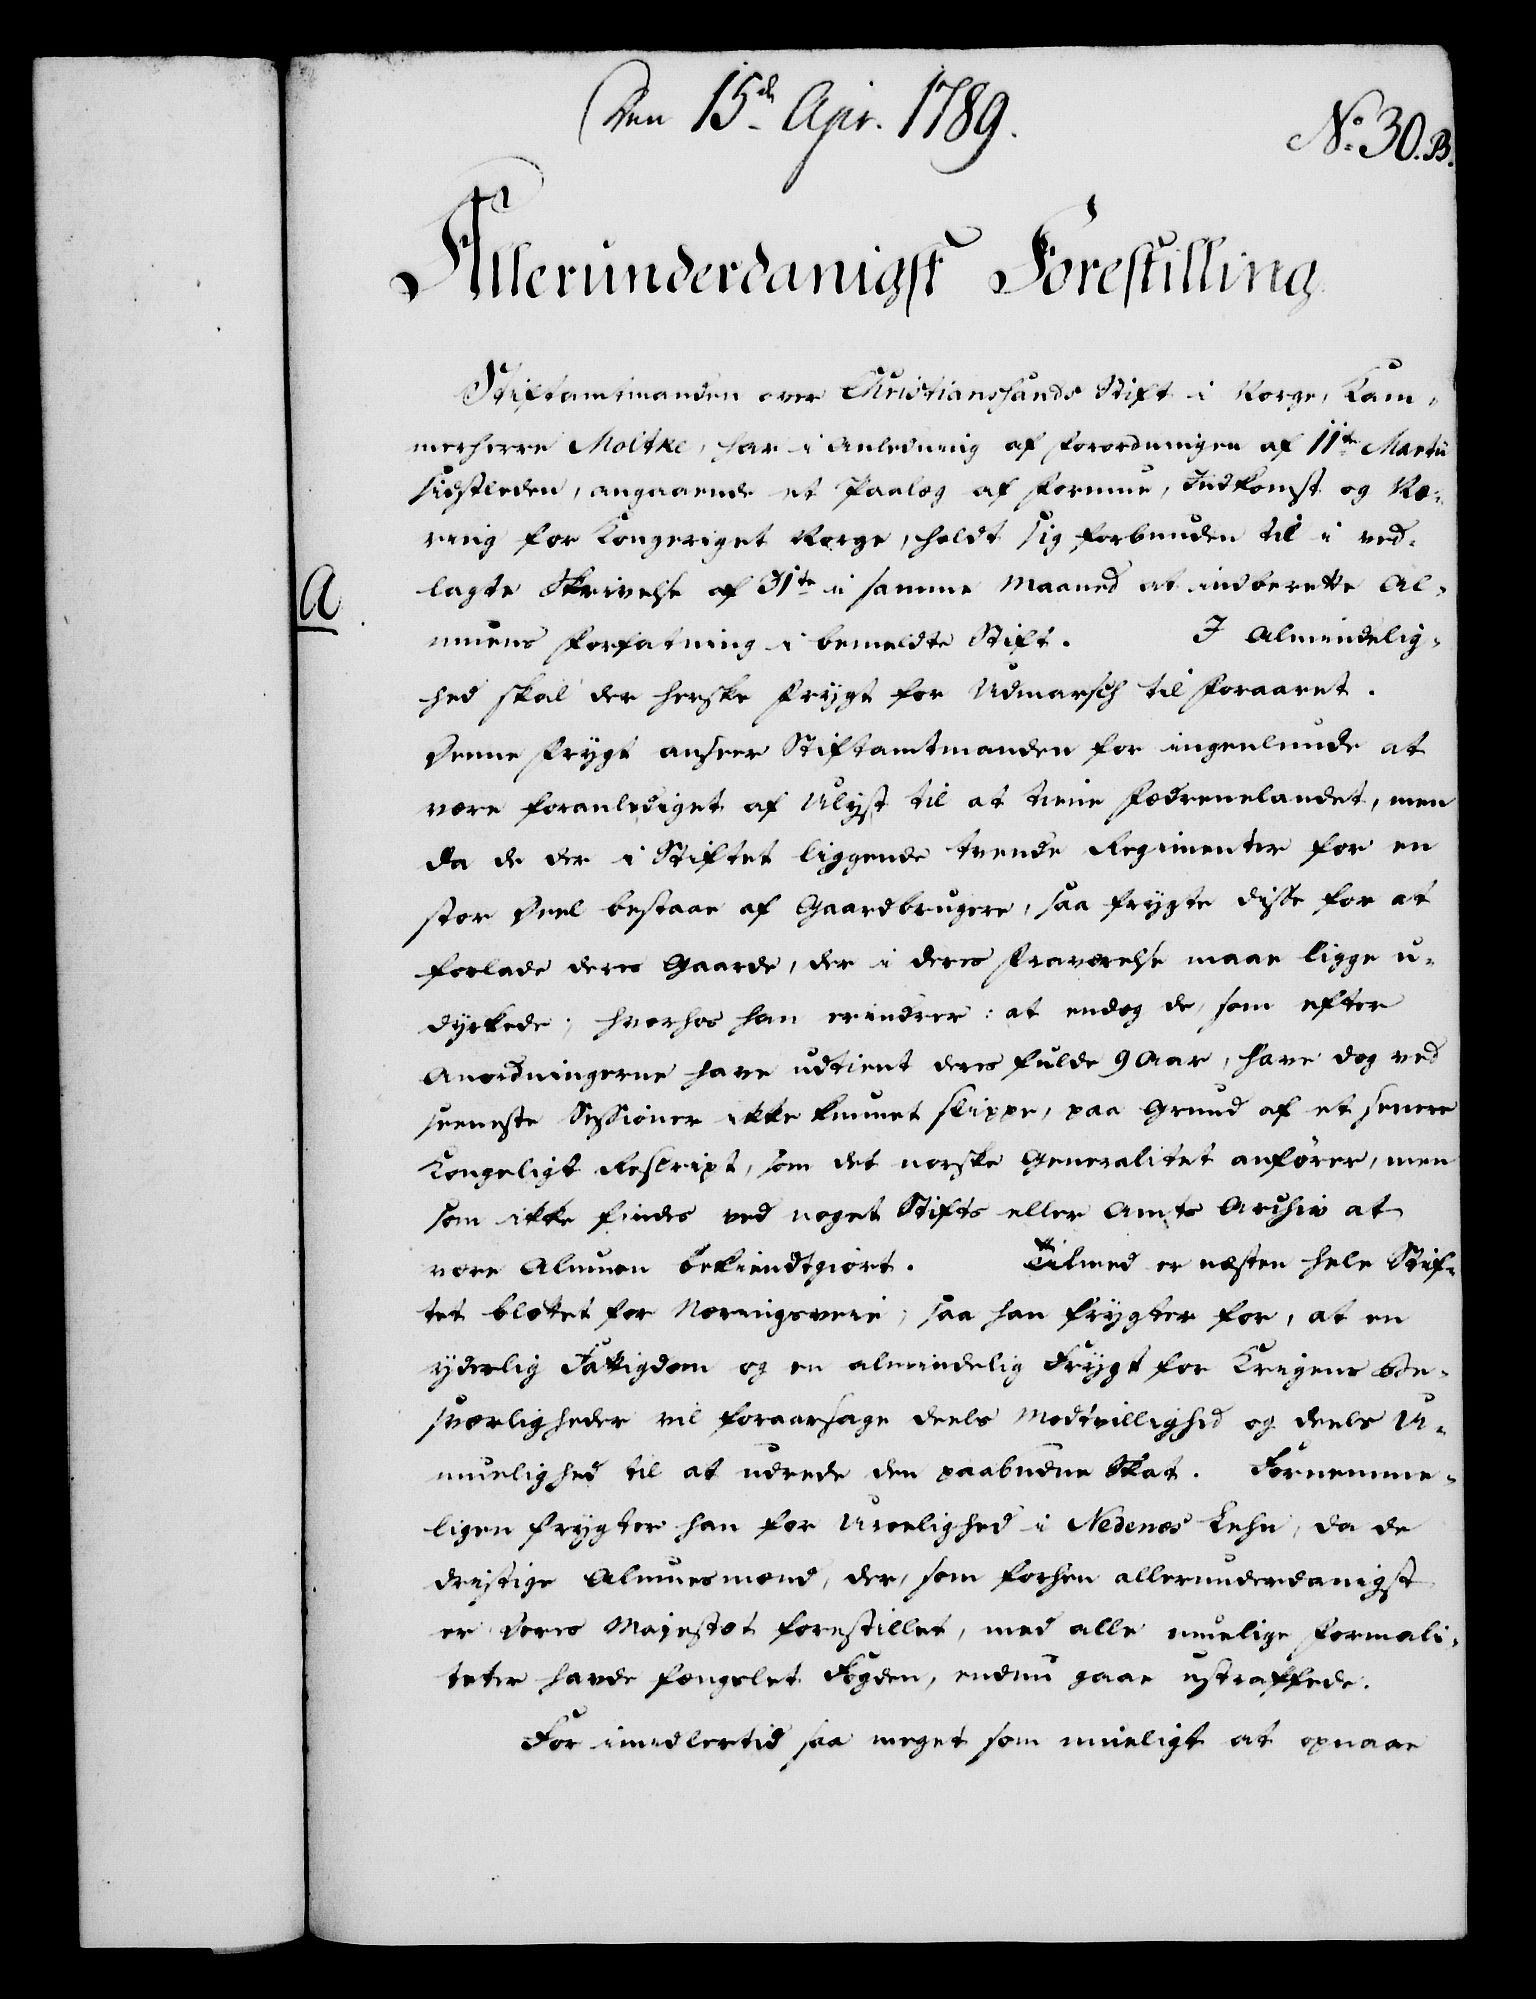 Den 15de Apr. 1789.
No. 30. B.
Allerunderdanigst Forestilling
Stiftamtmanden over Christiansands Stift i Norge, Kam-
merherre Moltke, har i Anledning af Forordningen af 11te Martii
sidstleden, angaaende et Paalæg af Formue, Indkomst og Næ-
ring for Kongeriget Norge, holdt sig forbunden til i ved-
A
lagte Skrivelse af 31te i samme Maaned at indberette Al-
muens Forfatning i bemeldte Stift. I Almindelig-
hed skal der herske Frygt for Udmarsch til Foraaret.
Denne Frygt anseer Stiftamtmanden for ingenlunde at
være foranlediget af Ulyst til at tiene Fædrenelandet, men
da de der i Stiftet liggende tvende Regimenter for en
stor Deel bestaae af Gaardbrugere, saa frygte disse for at
forlade deres Gaarde, der i deres Fraværelse maae ligge u-
dyrkede; hvorhos han erindrer: at endog de, som efter
Anordningerne have udtient deres fulde 9 Aar, have dog ved
seeneste Sessioner ikke kunnet slippe, paa Grund af et senere
Kongeligt Rescript, som det norske Generalitet anfører, men
som ikke findes ved noget Stifts eller Amts Archiv at
være Almuen bekiendtgiort. Tilmed er næsten hele Stif-
tet blottet for Næringsveie; saa han frygter for, at en
yderlig Fattigdom og en almindelig Frygt for Krigens Be-
sværligheder vil foraarsage deels Modvillighed og deels U-
muelighed til at udrede den paabudne Skat. Fornemme-
ligen frygter han for Uroelighed i Nedenæs Lehn, da de
dristige Almuesmænd, der, som forhen allerunderdanigst
er Deres Majestæt forestillet, med alle muelige Formali-
teter havde fængslet Fogden, endnu gaae ustraffede.
For imidlertid saa meget som mueligt at opnaae